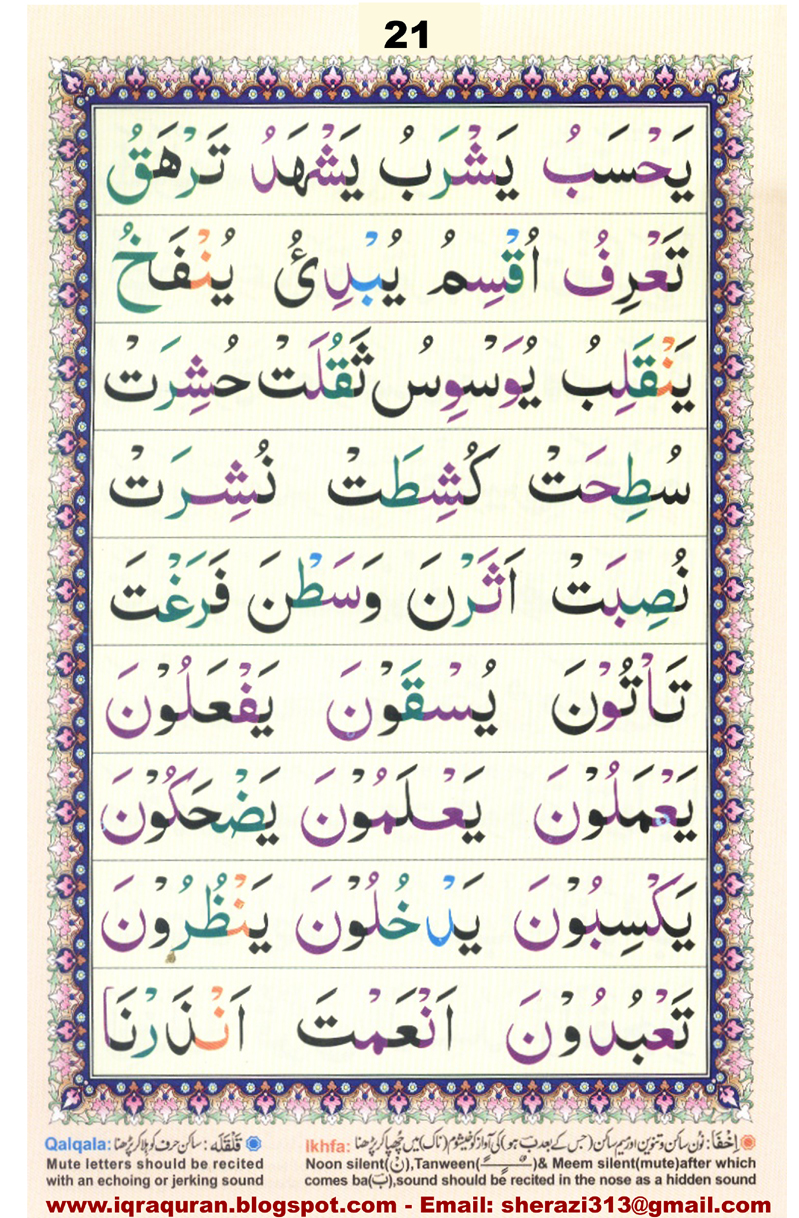 21
يَحْسَبُ يَشْرَبُ يَشْهَدُ تَرْهَقُ
تَعْرِفُ اُقْسِمُ يُبْدِئُ يُنْفَخُ
يَنْقَلِبُ يُوَسْوِسُ ثَقُلَتْ حُشِرَتْ
سُطِحَتْ كُشِطَتْ نُشِرَتْ
نُصِبَتْ اَثَرْنَ وَسَطْنَ فَرَغْتَ
تَاْتُوْنَ يُسْقَوْنَ يَفْعَلُوْنَ
يَعْمَلُوْنَ يَعْلَمُوْنَ يَضْحَكُوْنَ
يَكْسِبُوْنَ يَدْخُلُوْنَ يَنْظُرُوْنَ
تَعْبُدُوْنَ اَنْعَمْتَ اَنْذَرْنَا
اِخْفَا: نُون ساکن و تنوین اور میم ساکن (جس کے بعد بَ ہو) کی آواز کو خیشوم (ناک) میں چُھپا کر پڑھنا
Ikhfa:
Noon silent(نْ),Tanween(ــًــٍــٌــ)& Meem silent(mute)after which
comes ba(بَ),sound should be recited in the nose as a hidden sound
قَلْقَلَه: ساکن حرف کو ہلا کر پڑھنا
Qalqala:
Mute letters should be recited
with an echoing or jerking sound
www.iqraquran.blogspot.com - Email: sherazi313@gmail.com